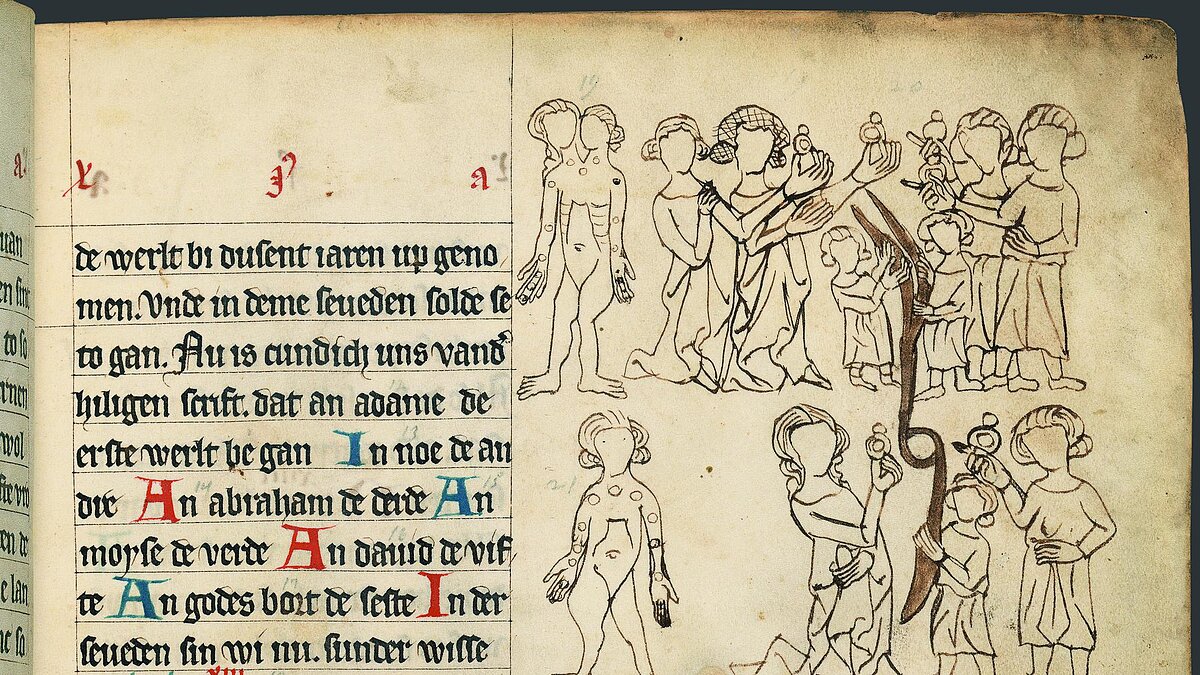 X J a
de werlt bi dusent iaren up geno
men. Vnde in deme seueden solde se
to gan. Nu is cundich uns vand'
hiligen scrift. dat an adame de
erste werlt be gan In noe de an
dire An abraham de derde An
moyse de verde An dauid de vif
te An godes bort de seste In der
seueden sin wi nu. sunder wisse